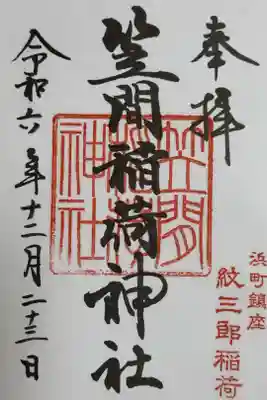 奉拝
浜町鎮座
紋三郎稲荷
笠間稲荷神社
笠間稲荷神社
令和六年十二月二十三日